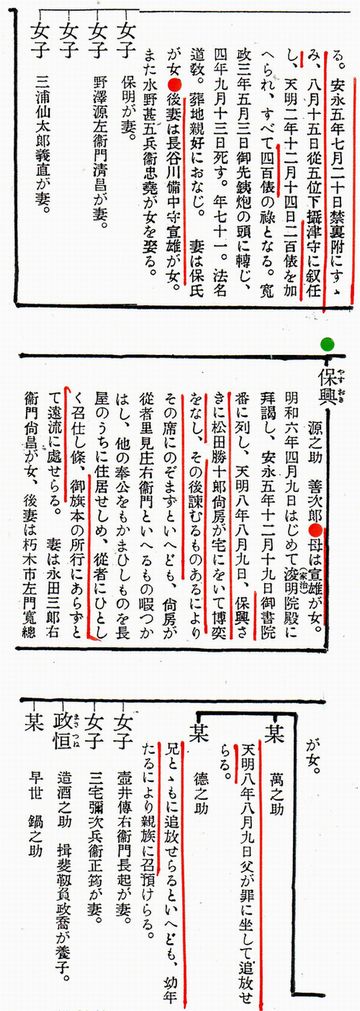 る。安永五年七月二十日禁裏附にすゝ
み、八月十五日從五位下攝津守に叙任
し、天明二年十二月十四日二百俵を加
へられ、すべて四百俵の祿となる。寬
政三年五月三日御先銕炮の頭に轉じ、
四年九月十三日死す。年七十一。法名
道敎。葬地親好におなじ。 妻は保氏
が女 後妻は長谷川備中守宣雄が女。
また水野甚五兵衞忠堯が女を娶る。
女子
保明が妻。
女子
野澤源左衞門淸昌が妻。
女子
女子
三浦仙太郎義直が妻。
保興
やす おき
源之助 善次郎 母は宣雄が女。
明和六年四月九日はじめて浚明院殿に
(家治)
拜謁し、安永五年十二月十九日御書院
番に列し、天明八年八月九日、保興さ
きに松田勝十郎尙房が宅にをいて博奕
をなし、その後諫むるものあるにより
その席にのぞまずといへども、尙房が
從者里見庄右衞門といへるもの暇つか
はし、他の奉公をもかまひしものを長
屋のうちに住居せしめ、從者にひとし
く召仕し條、御旗本の所行にあらずと
て遠流に處せらる。 妻は永田三郎右
衞門尙昌が女、後妻は朽木市左門寬總
が女。
某
萬之助
天明八年八月九日父が罪に坐して追放せ
らる。
某
德之助
兄とゝもに追放せらるといへども、幼年
たるにより親族に召預けらる。
女子
壺井傳右衞門長起が妻。
女子
三宅彌次兵衞正筠が妻。
政恒
まさ つね
造酒之助 揖斐靱負政喬が養子。
某
早世 鍋之助